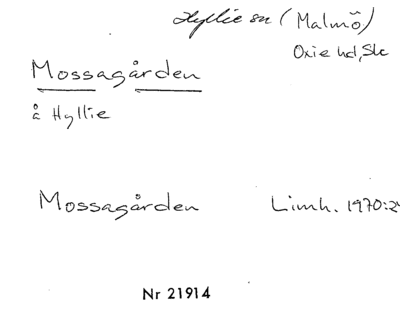 Hyllie sn (Malmö)
Oxie hd, Sk
Mossagården
å Hyllie
Mossagården Limh. 1970:2
Nr 21914